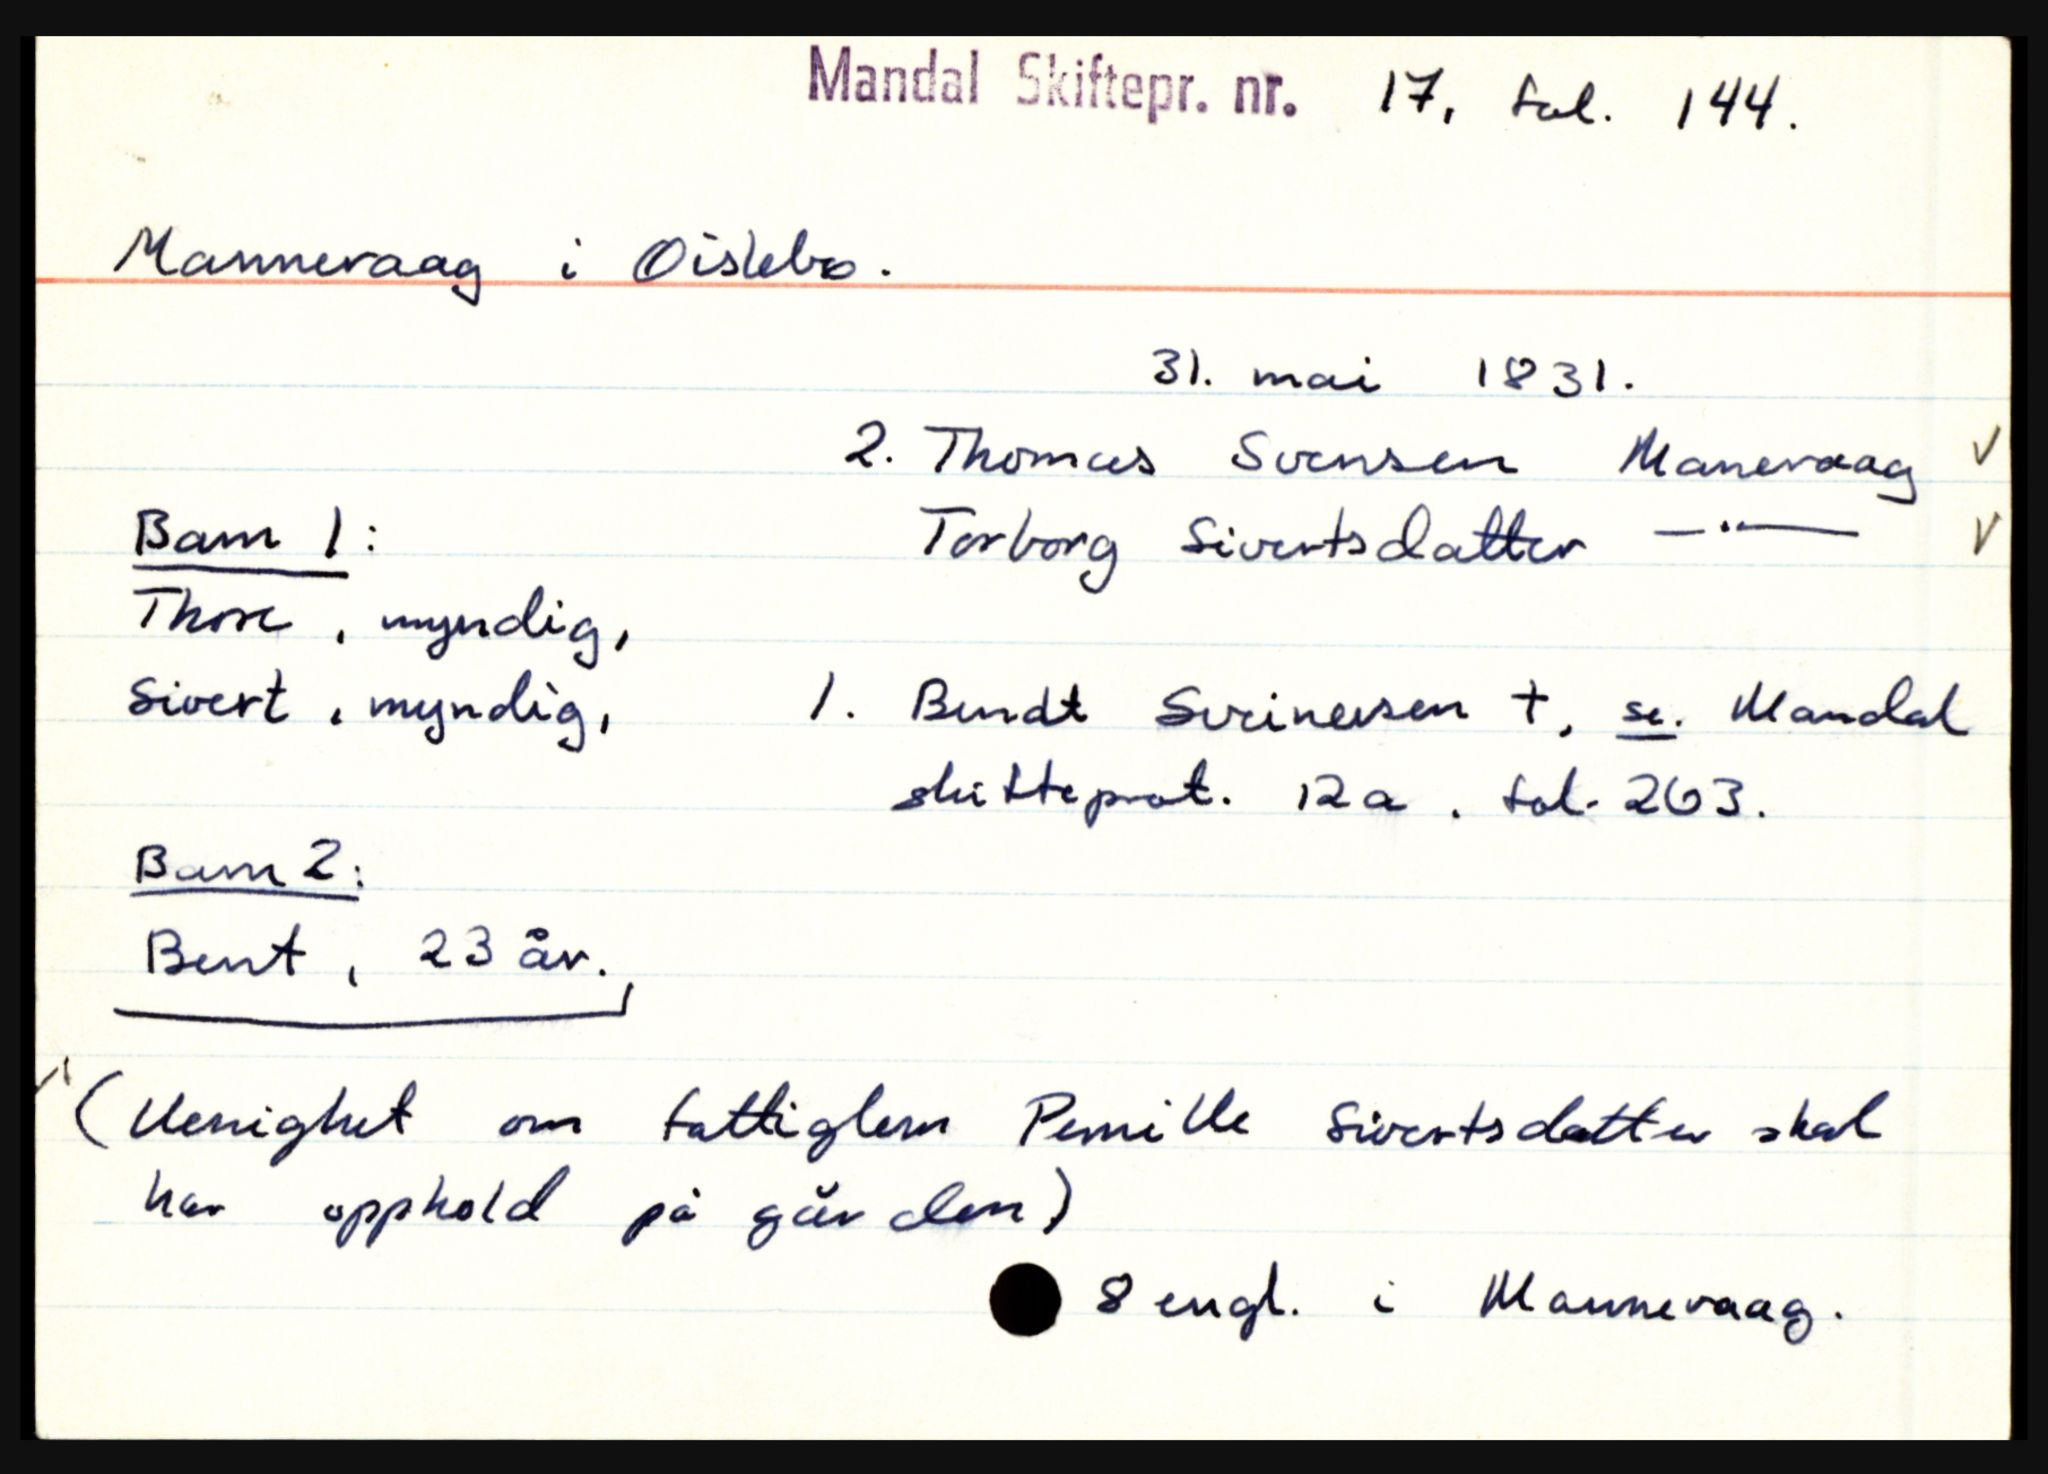 Mandal Skiftepr. nr. 17, fol. 144.
Mannevaag i Øislebø.
31. mai 1831.
2. Thomas Svensen Manevaag √
Torborg Sivertsdatter —"— √
Barn 1:
Thore, myndig,
Sivert, myndig,
1. Bendt Sveinersen †, se. Mandal
skifteprot. 12a, fol. 263.
Barn 2:
Bent, 23 år.
(Uenighet om fattiglem Pernille Sivertsdatter skal
har opphold på gården)
8 engl. i Mannevaag.